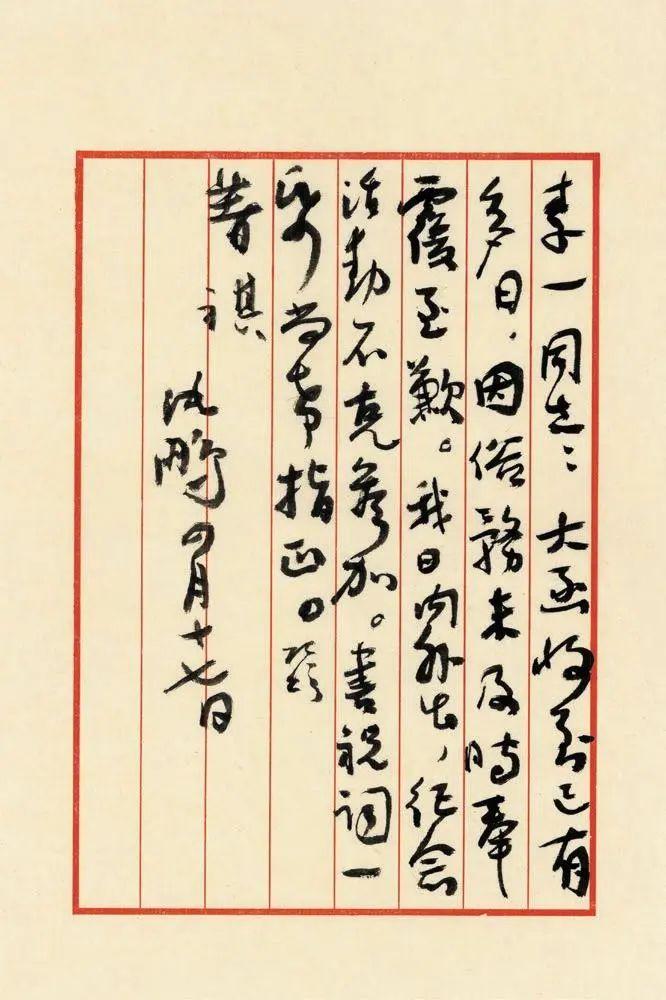 李一同志：大函收到已有
多日，因俗務未及時奉
覆至歉。我日内外出，纪念
活動不克參加。書祝词一
帋尚希指正。颂
著祺
沈鵬四月十七日